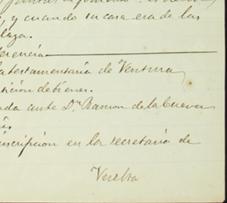 y cuando su casa era de las
erencia
testamentaria de Ventura
ición de bienes.
ada ante Dn Ramon de la Cueva
inscripción en la secretaría de
Vuelta